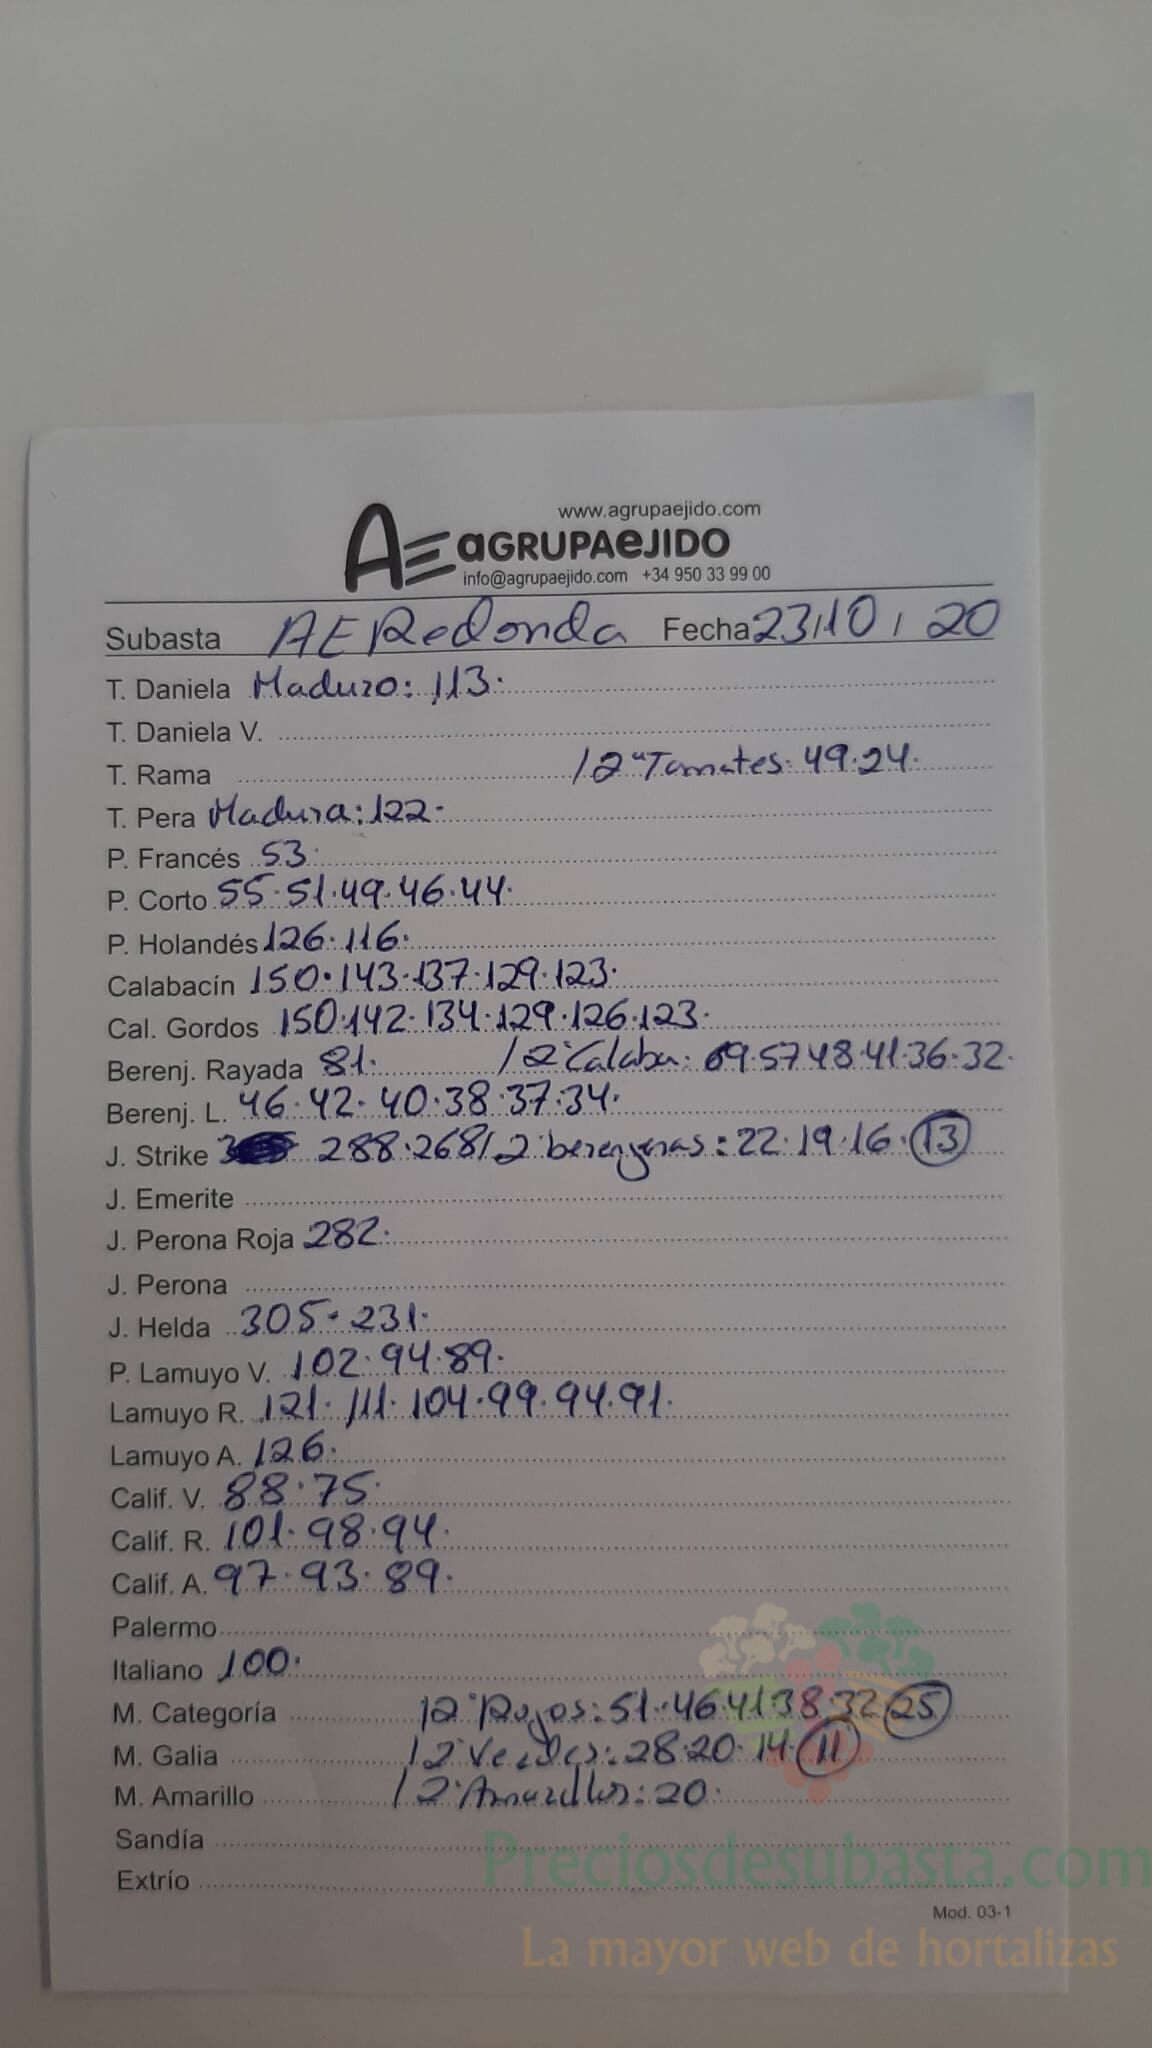 www.agrupaejido.com
AE aGRUPAeJIDO
info@agrupaejido.com +34 950 33 99 00
Subasta AE Redonda Fecha 23/10/20
T. Daniela Maduro: 113.
T. Daniela V.
T. Rama /2ª Tomates: 49.24.
T. Pera Madura: 122.
P. Francés 53.
P. Corto 55.51.49.46.44.
P. Holandés 126.116.
Calabacín 150.143.137.129.123.
Cal. Gordos 150.142.134.129.126.123.
Berenj. Rayada 81. /2ª Calaba: 69.57.48.41.36.32.
Berenj. L. 46.42.40.38.37.34.
J. Strike 288.268/2ª berenjenas: 22.19.16.13
J. Emerite
J. Perona Roja 282.
J. Perona
J. Helda 305.231.
P. Lamuyo V. 102.94.89.
Lamuyo R. 121.111.104.99.94.91.
Lamuyo A. 126.
Calif. V. 88.75.
Calif. R. 101.98.94.
Calif. A. 97.93.89.
Palermo
Italiano 100.
M. Categoría /2ª Rojos: 51.46.41.38.32.25
M. Galia /2ª Verdes: 28.20.14.11
M. Amarillo /2ª Amarillos: 20.
Sandía
Extrío
Preciosdesubasta.com
Mod. 03-1
La mayor web de hortalizas